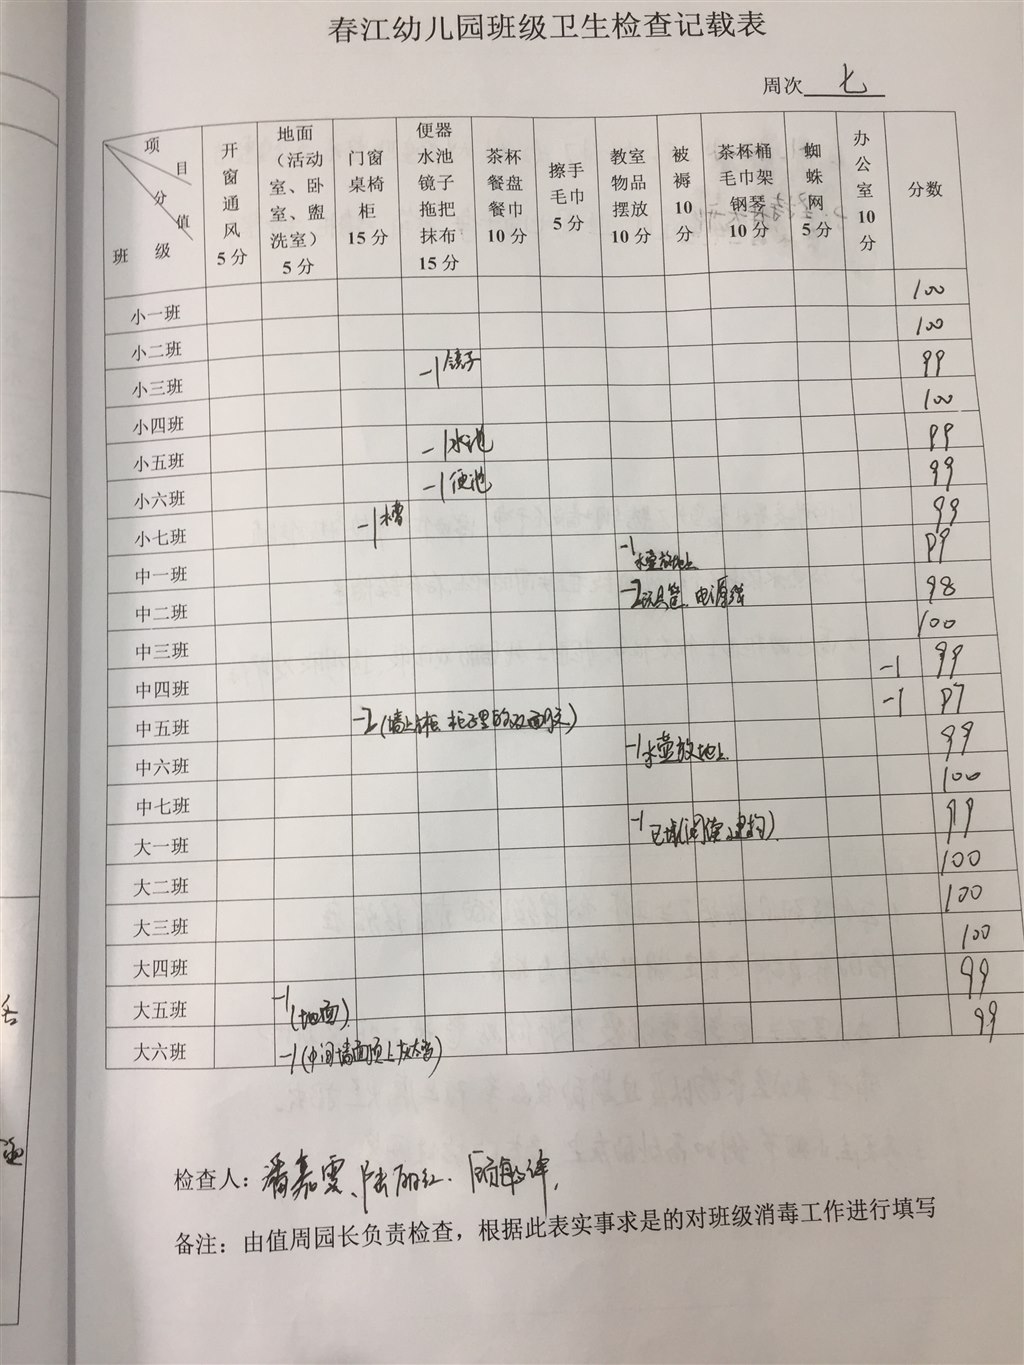 春江幼儿园班级卫生检查记载表
周次 七
项目 分值 班级
开窗通风 5分
地面（活动室、卧室、盥洗室） 5分
门窗桌椅柜 15分
便器水池镜子拖把抹布 15分
茶杯餐盘餐巾 10分
擦手毛巾 5分
教室物品摆放 10分
被褥 10分
茶杯桶毛巾架钢琴 10分
蜘蛛网 5分
办公室 10分
分数
小一班 100
小二班 100
小三班 -1镜子 99
小四班 100
小五班 -1水池 99
小六班 -1便池 99
小七班 -1 99
中一班 -1水壶放地上 99
中二班 -2玩具筐、电源线 98
中三班 100
中四班 -1 99
中五班 -2(墙上 柜子里的双面胶) -1 97
中六班 -1水壶放地上 99
中七班 100
大一班 -1区域(阅读、建构) 99
大二班 100
大三班 100
大四班 100
大五班 -1(地面) 99
大六班 -1(中间墙面顶上灰) 99
检查人：潘嘉雯、陆丽红、顾
备注：由值周园长负责检查，根据此表实事求是的对班级消毒工作进行填写